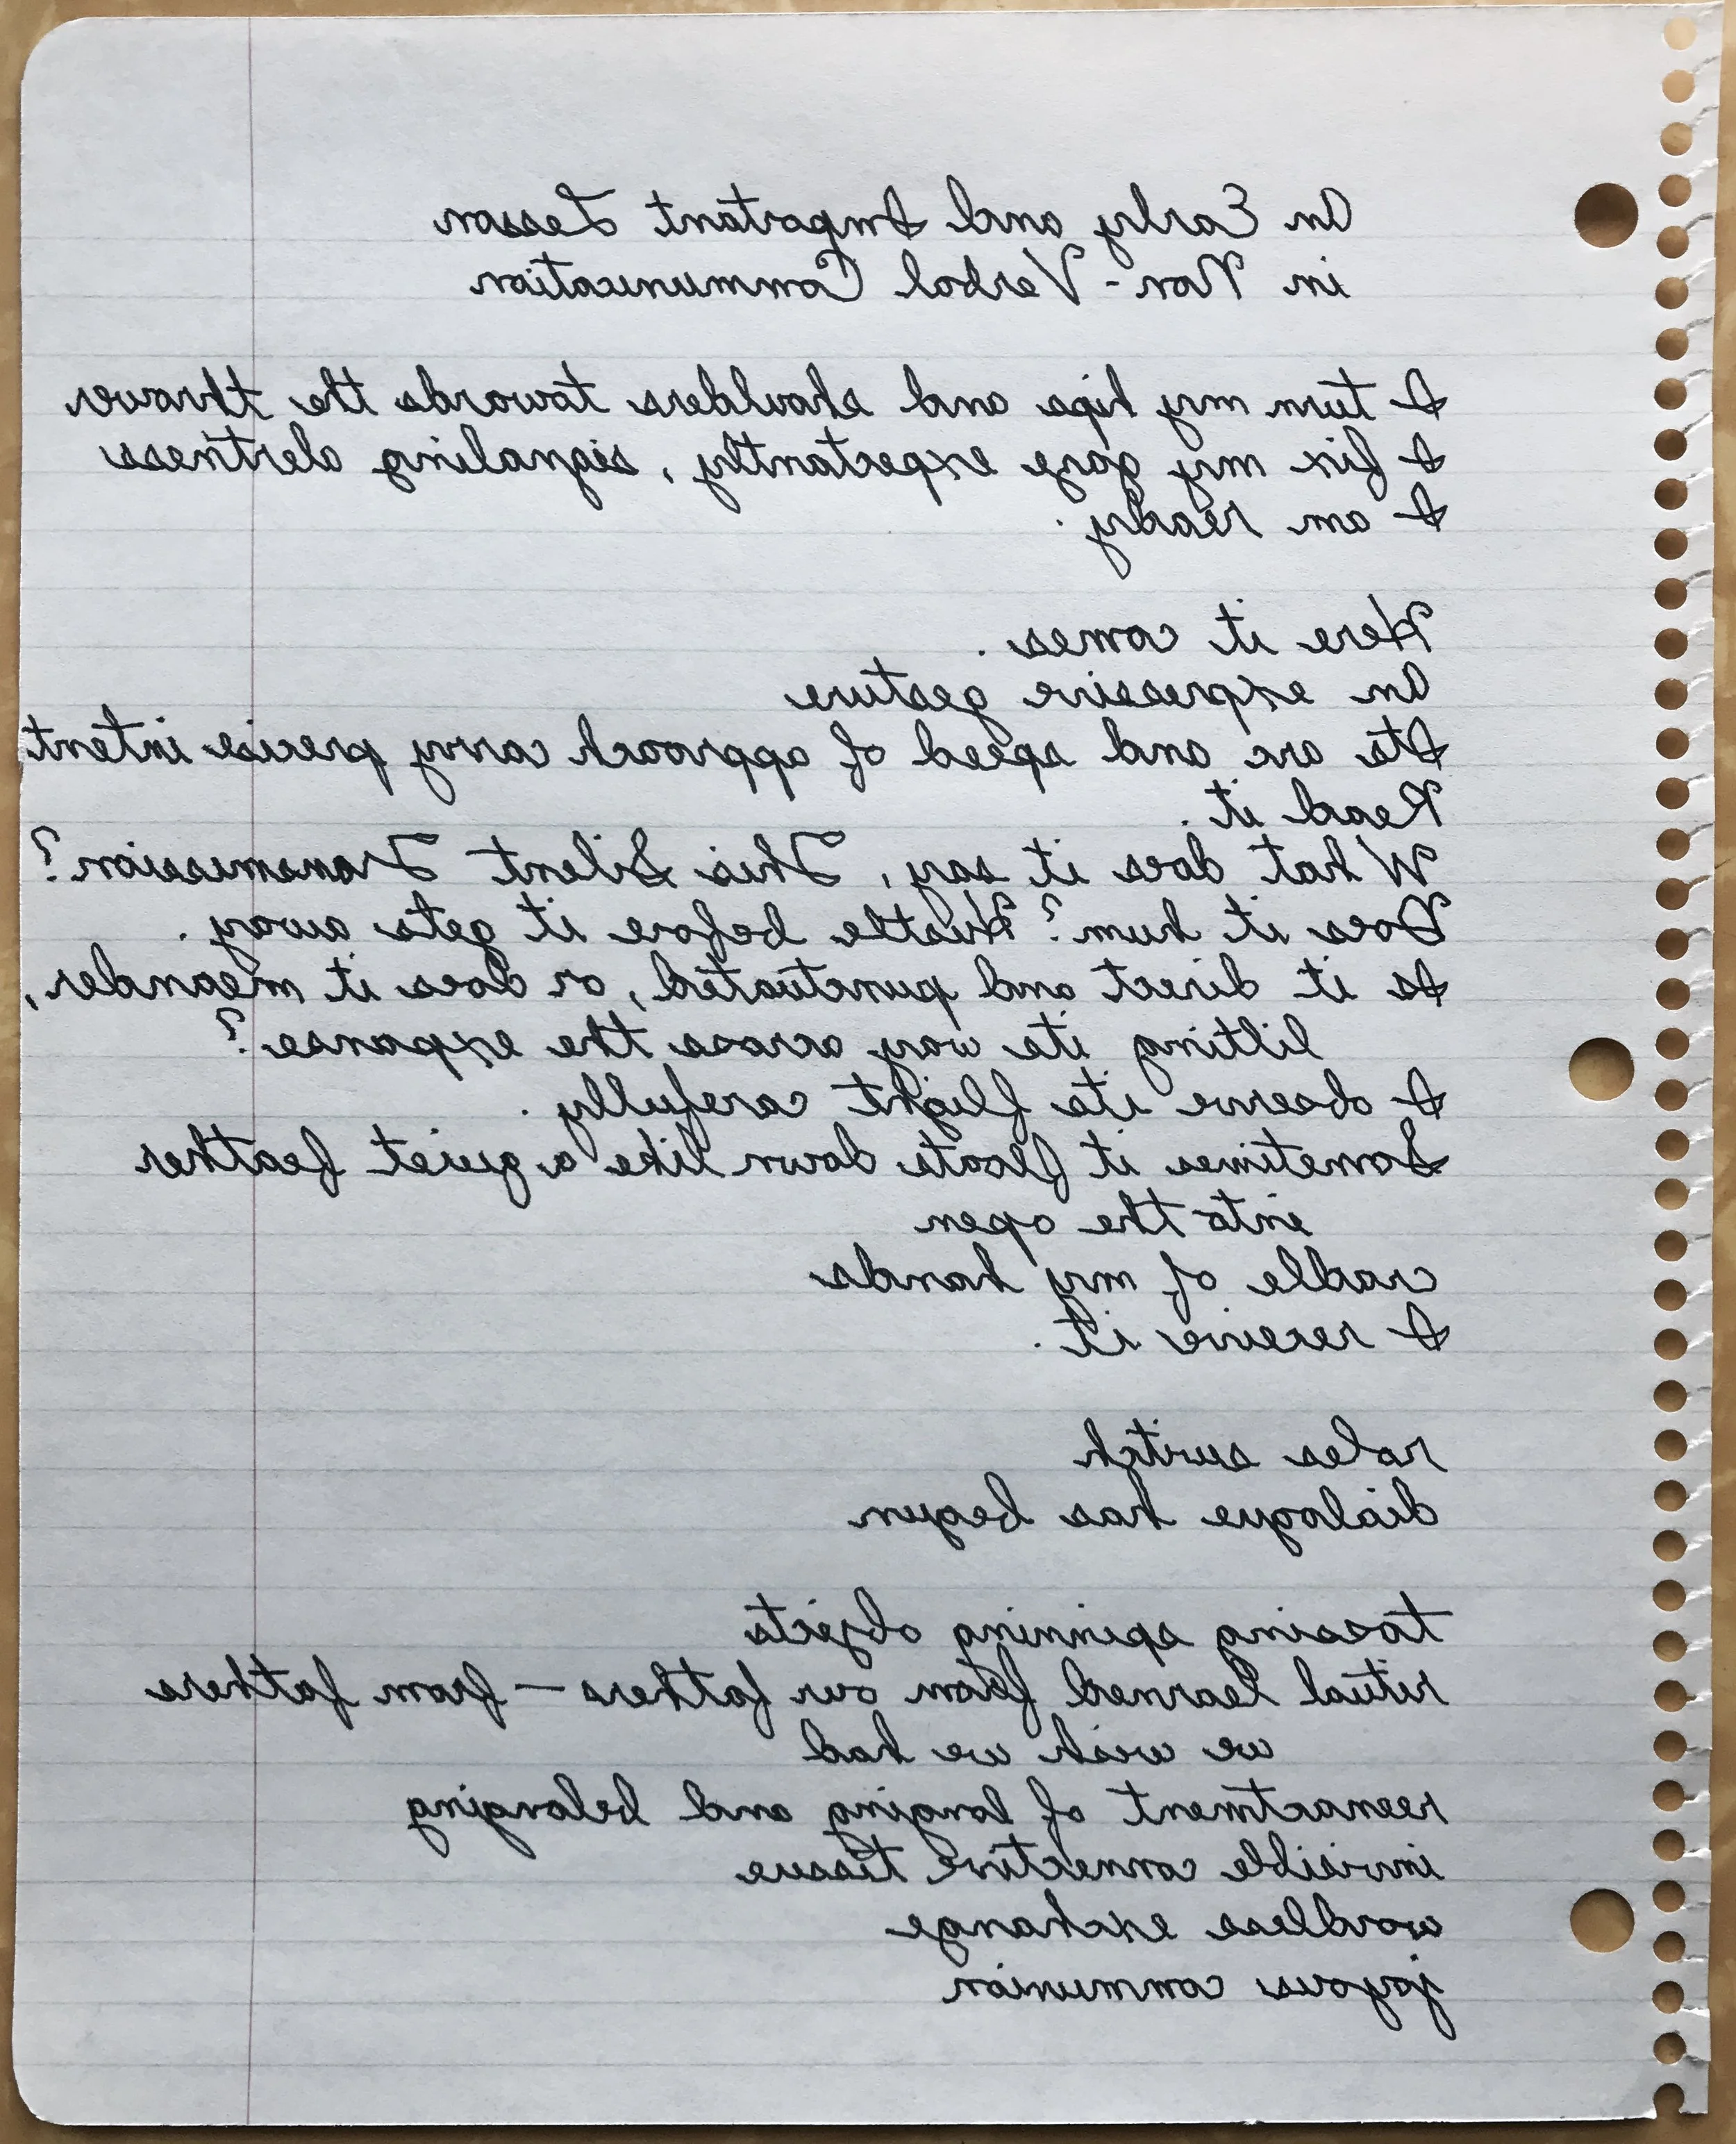 An Early and Important Lesson
in Non-Verbal Communication
I turn my hips and shoulders towards the thrower
I fix my gaze expectantly, signaling alertness
I am ready.
Here it comes.
An expressive gesture
Its arc and speed of approach carry precise intent
Read it.
What does it say, This Silent Transmission?
Does it hum? Hustle before it gets away.
Is it direct and punctuated, or does it meander,
lilting its way across the expanse?
I observe its flight carefully.
Sometimes it floats down like a quiet feather
into the open
cradle of my hands
I receive it.
roles switch
dialogue has begun
tossing spinning objects
ritual learned from our fathers — from fathers
we wish we had
reenactment of longing and belonging
invisible connective tissue
wordless exchange
joyous communion